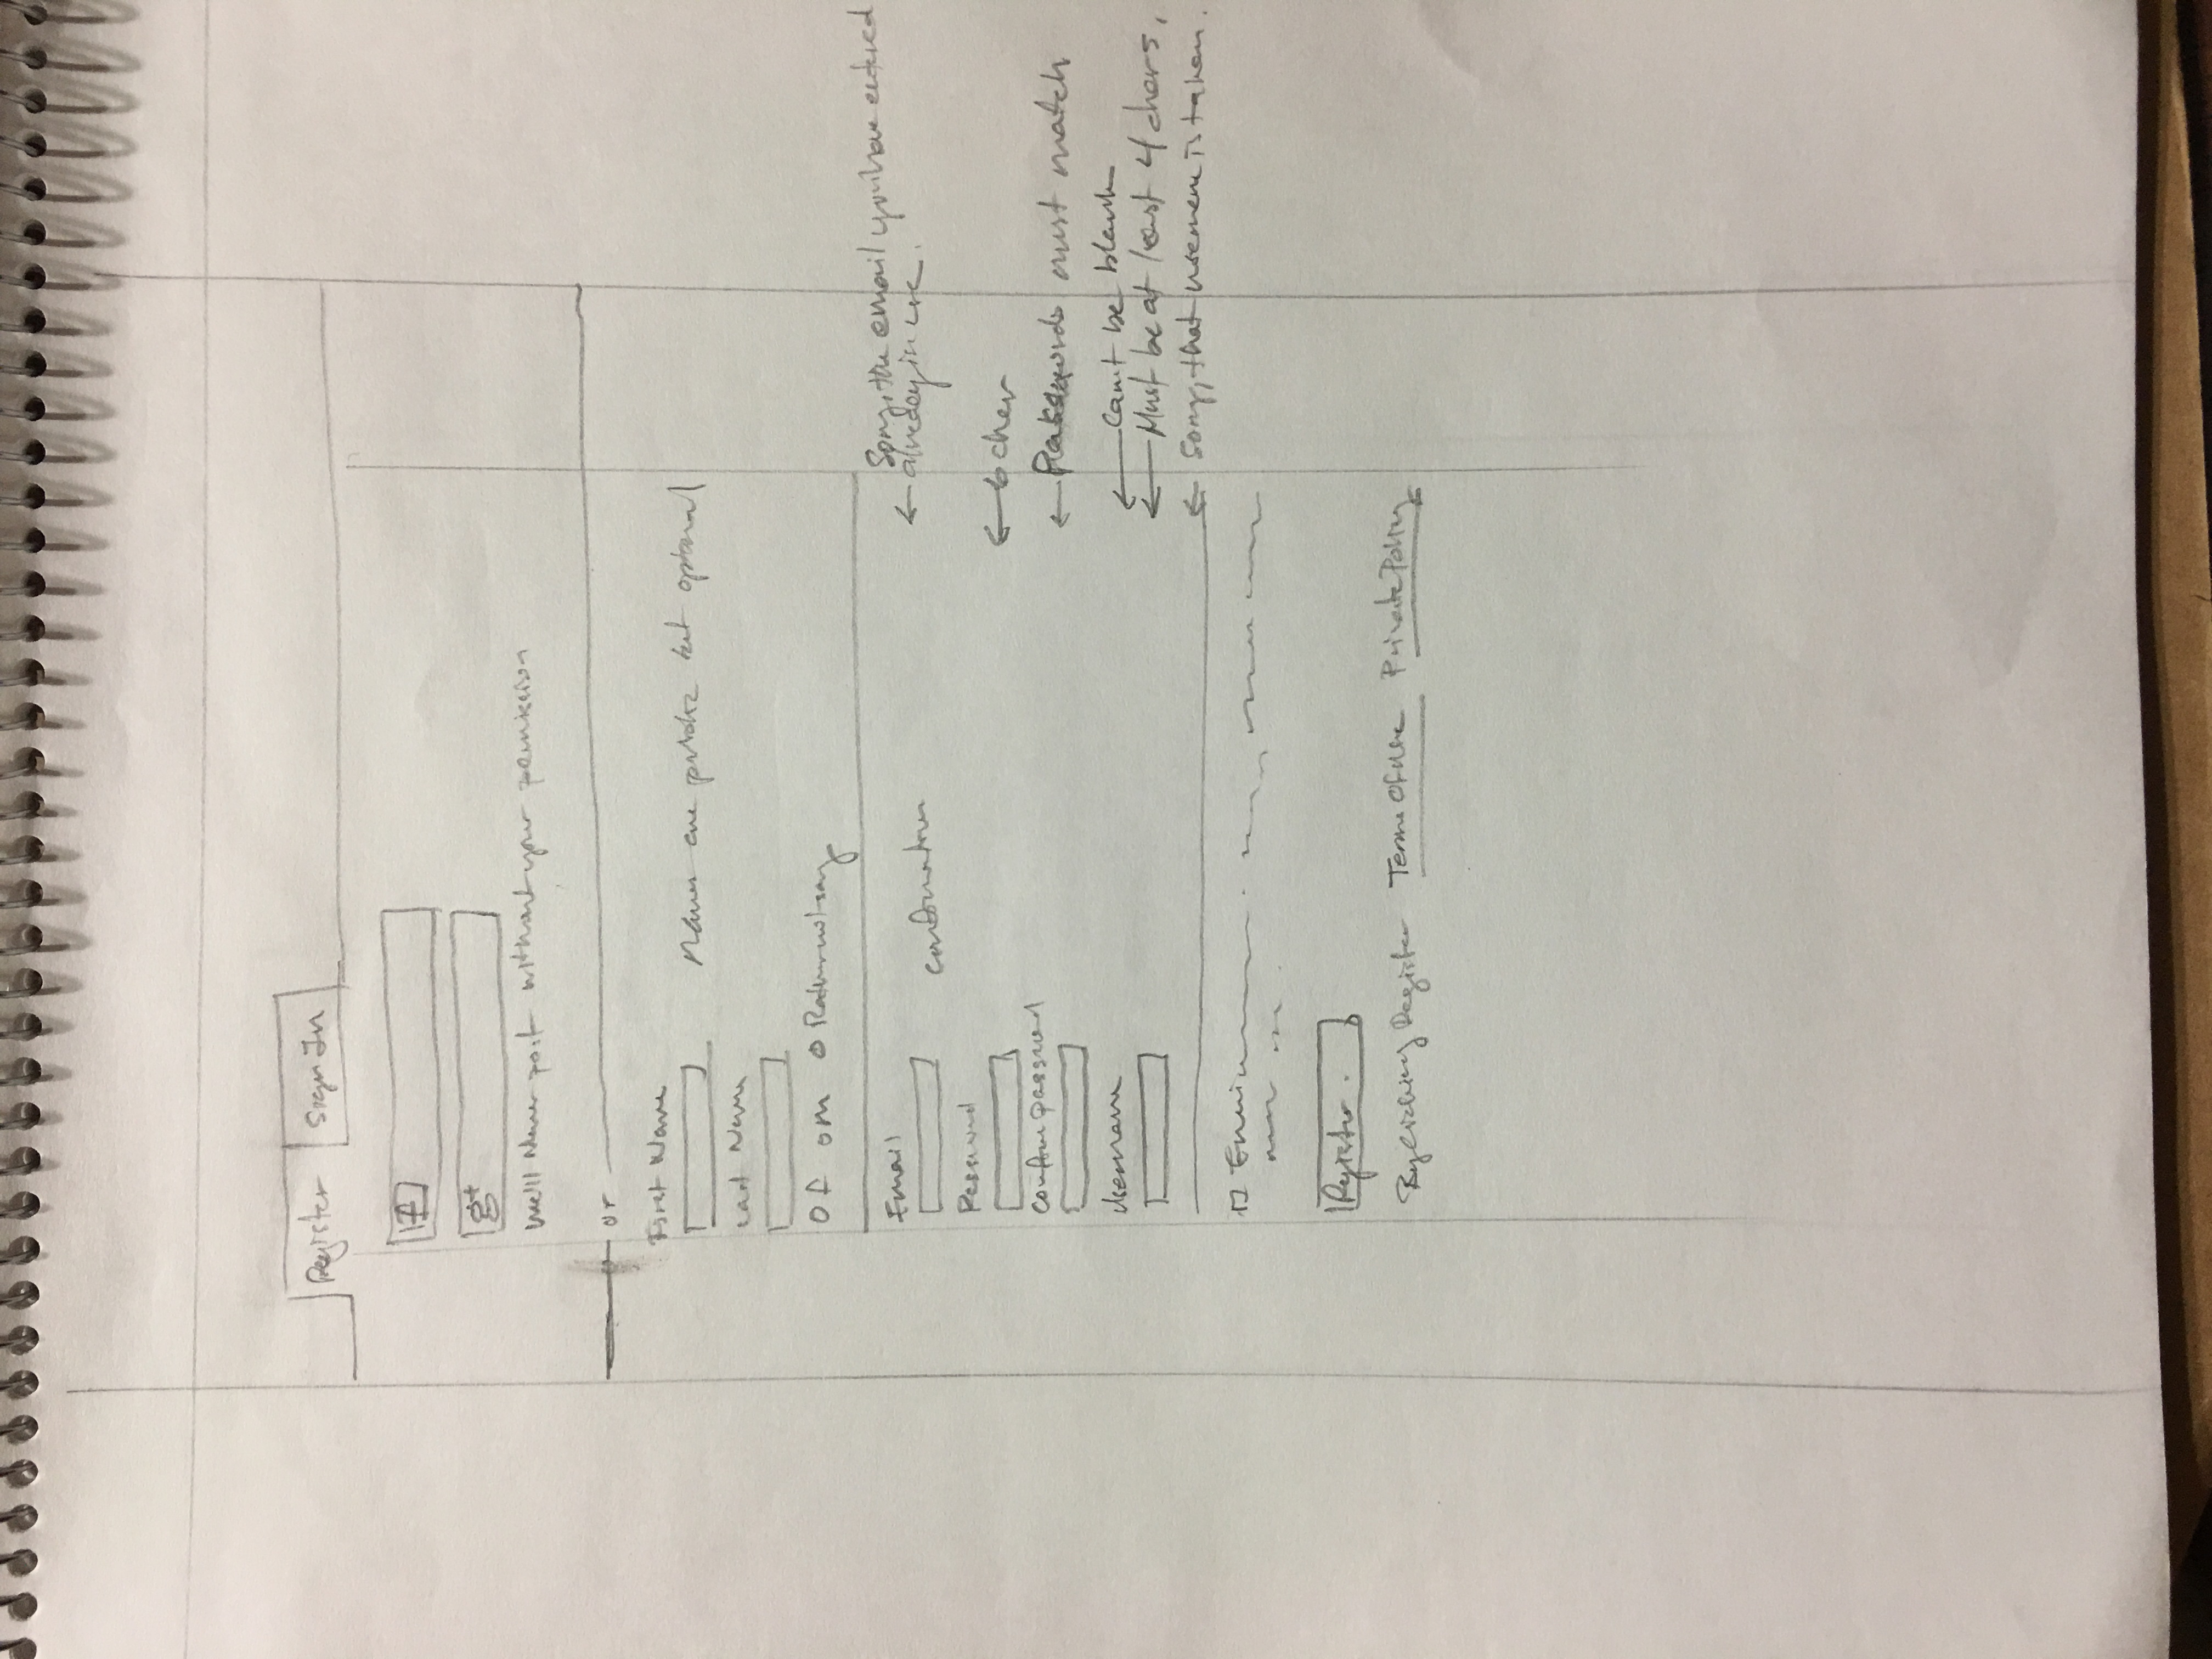 Register Sign In
f
g+
We'll Never post without your permission
or
First Name
Names are public but optional
Last Name
O f O m O Rather not say
Email
Sorry, the email you have entered
already in use.
confirmation
Password
6 char
Confirm password
Passwords must match
Username
Can't be blank
Must be at least 4 chars,
Sorry, that username is taken.
Register
By clicking Register Terms Of Use Private Policy